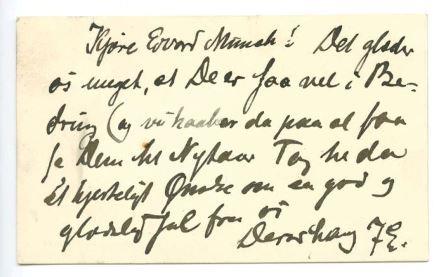 Kjære Edvard Munch! Det glæder
os meget, at De er saa vel i Be-
dring (og vi haaber da paa at faa
se Dem til Nytaar Tag
et hjerteligt Ønske om en god og
glædelig Jul fra os
Deres